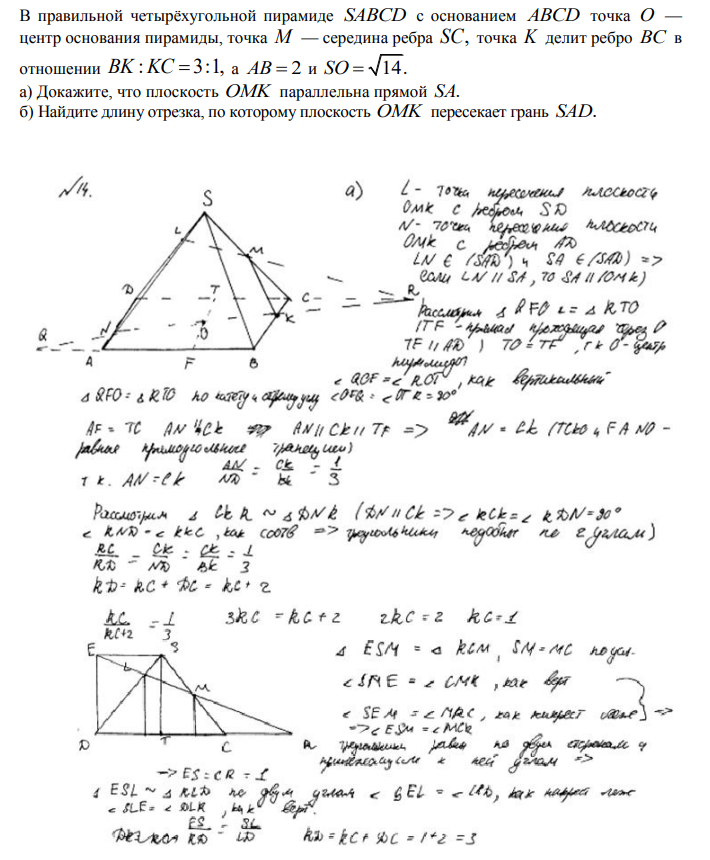 В правильной четырёхугольной пирамиде SABCD с основанием ABCD точка O —
центр основания пирамиды, точка M — середина ребра SC, точка K делит ребро BC в
отношении BK : KC = 3:1, а AB = 2 и SO = √14.
а) Докажите, что плоскость OMK параллельна прямой SA.
б) Найдите длину отрезка, по которому плоскость OMK пересекает грань SAD.
№14.
S
L
M
D
T
C
R
K
Q
N
O
A
F
B
а) L - точка пересечения плоскости
OMK с ребром SD
N - точка пересечения плоскости
OMK с ребром AD
LN ∈ (SAD) и SA ∈ (SAD) =>
если LN || SA, то SA || (OMK)
Рассмотрим Δ QFO и = Δ RTO
(TF - прямая проходящая через O
TF || AD) TO = TF, т к O - центр
пирамиды
∠ QOF = ∠ ROT, как вертикальный
Δ QFO = Δ RTO по катету и острому углу ∠OFQ = ∠OTR = 90°
AF = TC AN || CK AN || CK || TF => AN = CK (TCKO и FANO -
равные прямоугольные трапеции)
т к. AN = CK AN/ND = CK/BK = 1/3
Рассмотрим Δ CKR ~ Δ DNR (DN || CK => ∠ RCK = ∠ RDN = 90°
∠ RND = ∠ RKC, как соотв => треугольники подобные по 2 углам)
RC/RD = CK/ND = CK/BK = 1/3
RD = RC + DC = RC + 2
RC/RC+2 = 1/3 3RC = RC + 2 2RC = 2 RC = 1
E
S
L
M
D
T
C
R
Δ ESM = Δ RCM, SM = MC по усл.
∠ SME = ∠ CMR, как верт
∠ SEM = ∠ MRC, как накрест леже =>
=> ∠ ESM = ∠ MCR
треугольники равны по двум сторонам и
прилежащим к ней углам =>
=> ES = CR = 1
Δ ESL ~ Δ RLD по двум углам ∠ SEL = ∠ LRD, как накрест леж
∠ SLE = ∠ DLR, как верт.
ES/RD = SL/LD RD = RC + DC = 1 + 2 = 3